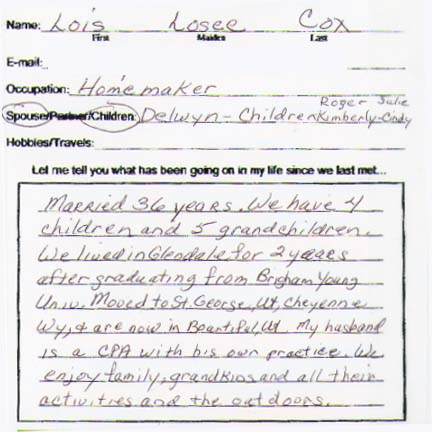 Name: Lois Losee Cox
First Maiden Last
E-mail:
Occupation: Homemaker
Roger Julie
Spouse/Partner/Children: Delwyn - Children Kimberly-Cindy
Hobbies/Travels:
Let me tell you what has been going on in my life since we last met...
Married 36 years. We have 4
children and 5 grandchildren.
We lived in Glendale for 2 years
after graduating from Brigham Young
Univ. Moved to St. George, Ut, Cheyenne
Wy, & are now in Bountiful, Ut. My husband
is a CPA with his own practice. We
enjoy family, grandkids and all their
activities and the outdoors.